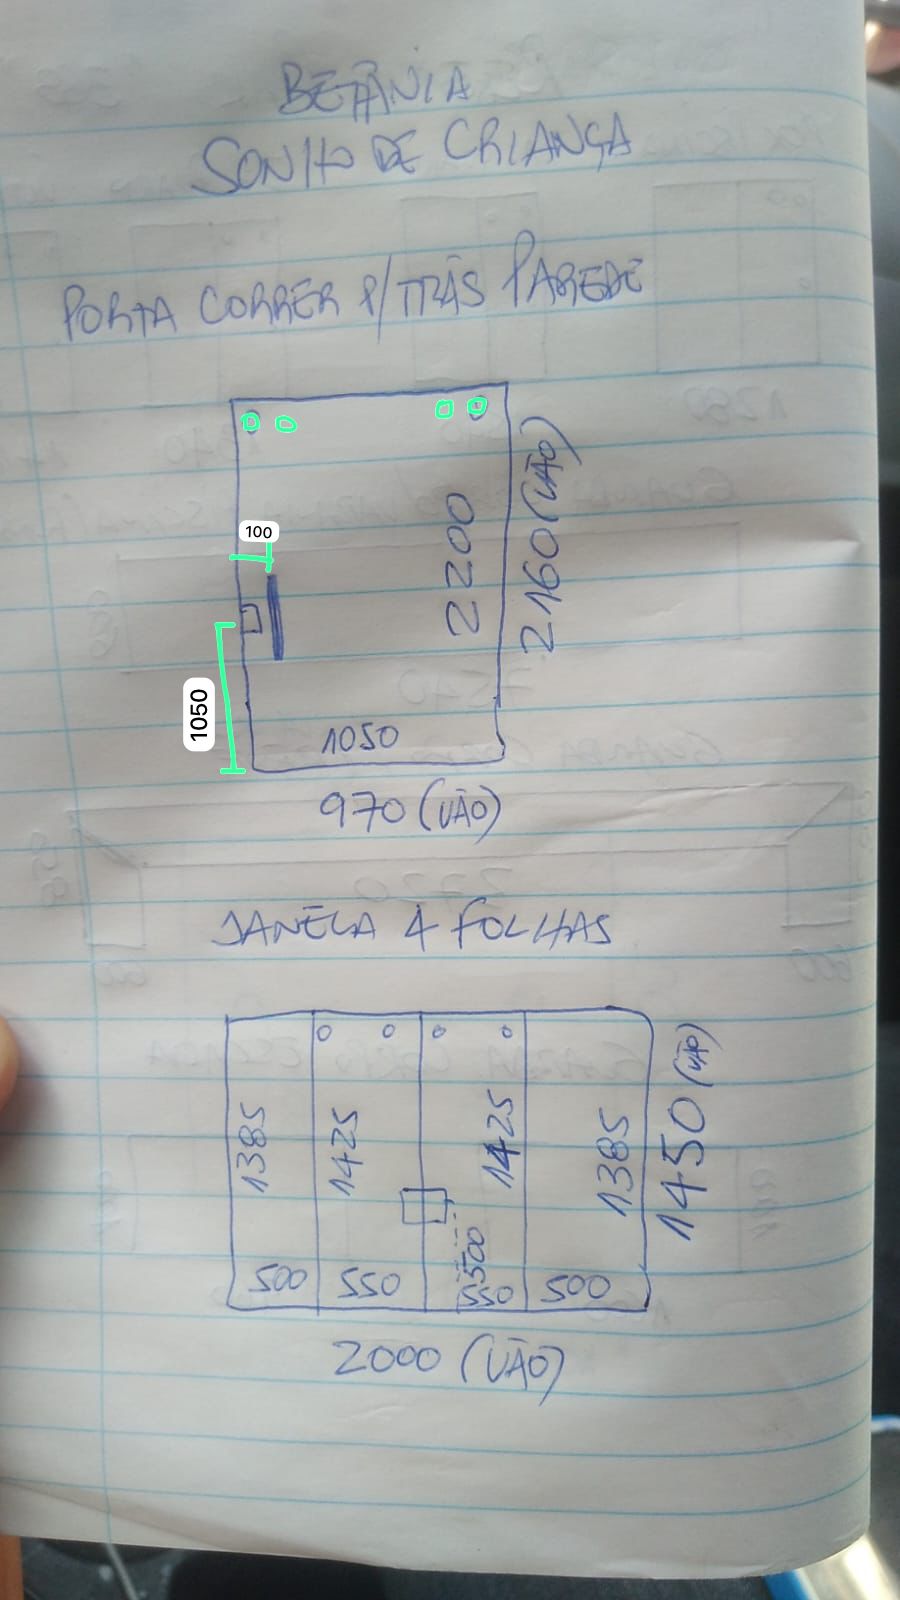 BETÂNIA
SONHO DE CRIANÇA
PORTA CORRER P/TRÁS PAREDE
100
2200
2160 (VÃO)
1050
1050
970 (VÃO)
JANELA 4 FOLHAS
1385
1425
1425
1385
1450 (VÃO)
500
500
550
550
500
2000 (VÃO)